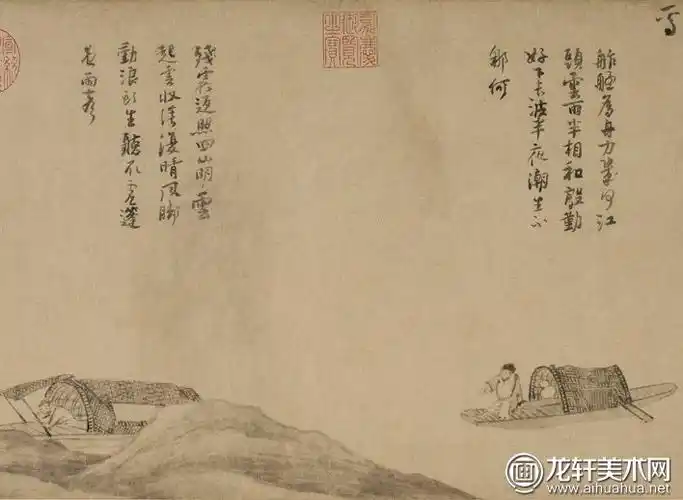 舴艋為舟力幾多江
頭雲雨半相和殷勤
好下長波半夜潮生不
那何
嘉慶御覽之寶
殘霞返照四山明雲
起雲收陰復晴風腳
動浪頭生聽取虛篷
夜雨聲
龙轩美术网
www.aihuahua.net